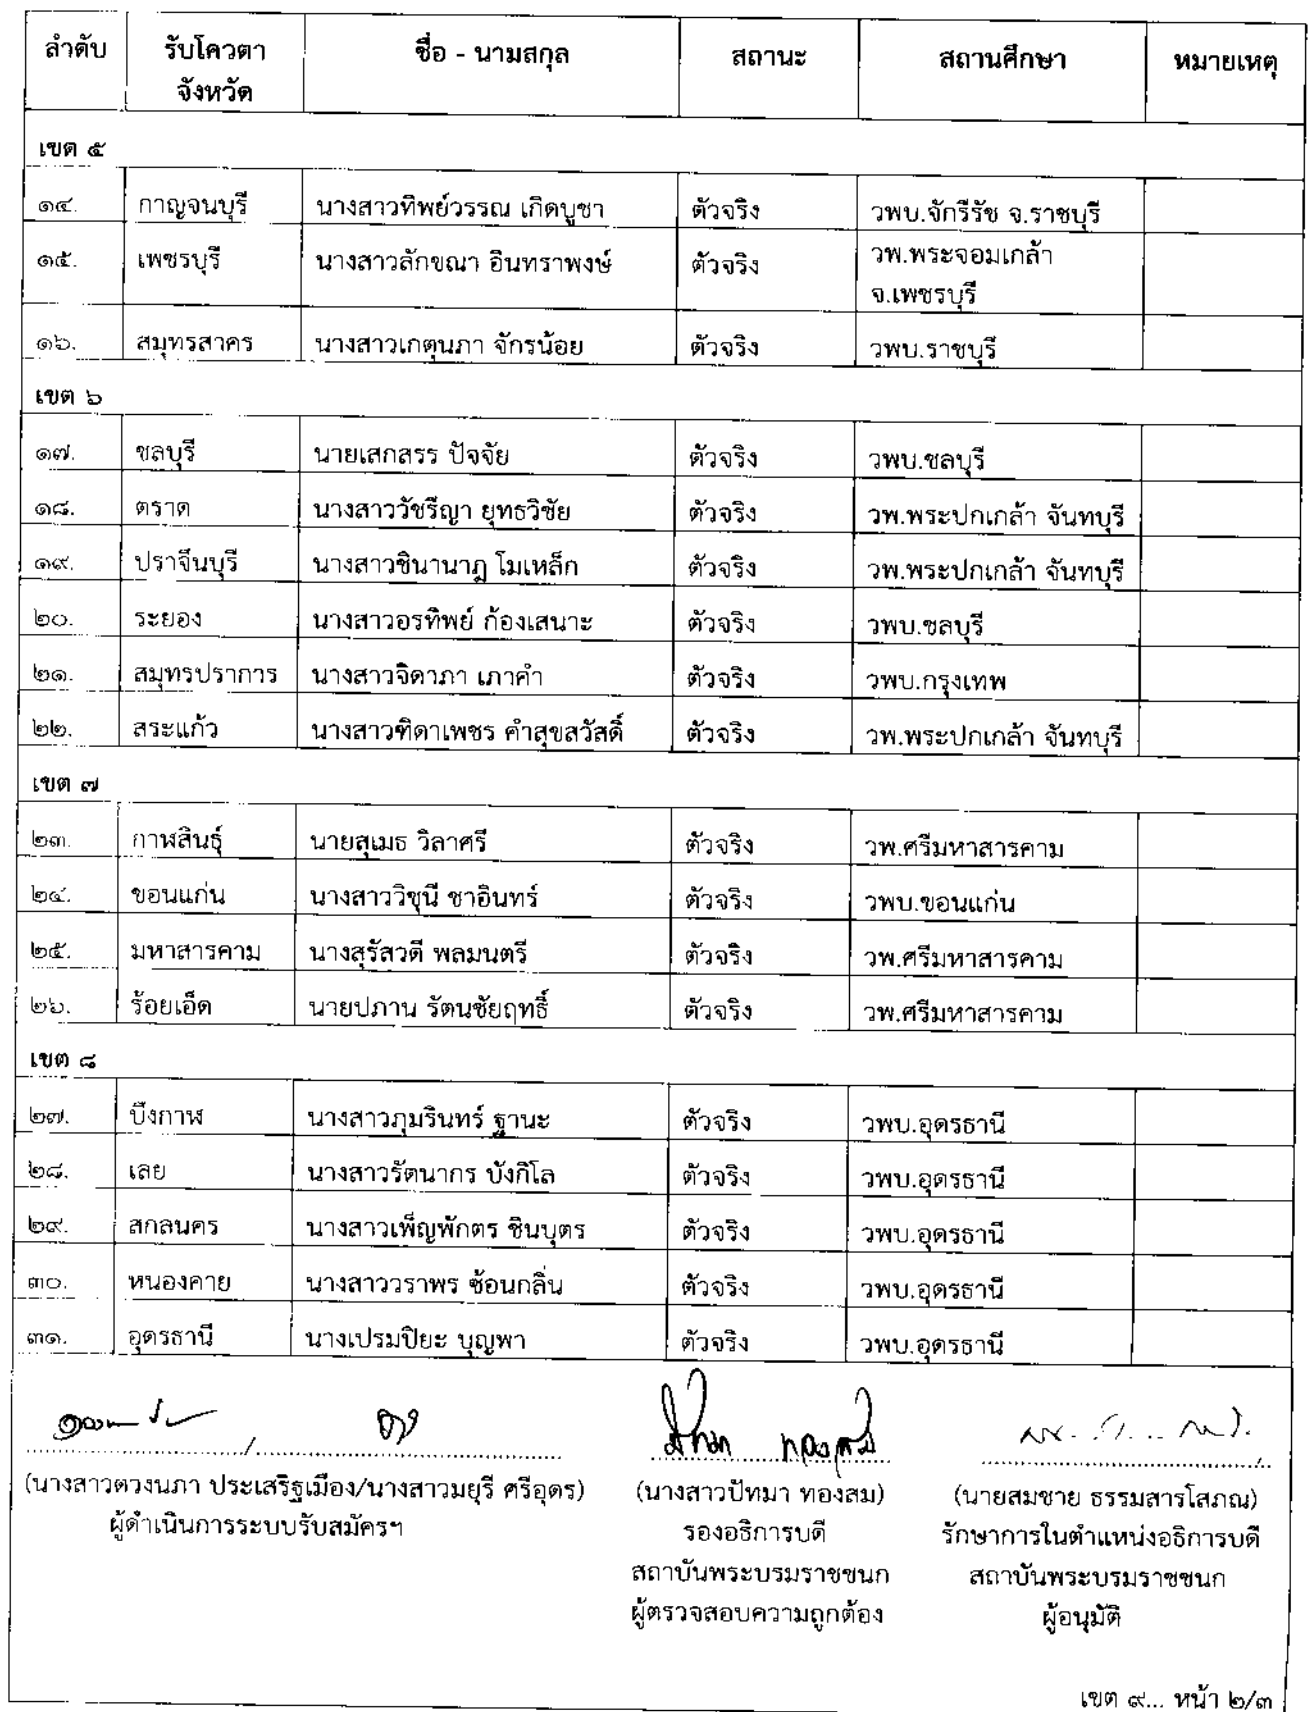 ลำดับ รับโควตา ชื่อ - นามสกุล สถานะ สถานศึกษา หมายเหตุ
จังหวัด
เขต ๕
๑๔. กาญจนบุรี นางสาวทิพย์วรรณ เกิดบูชา ตัวจริง วพบ.จักรีรัช จ.ราชบุรี
๑๕. เพชรบุรี นางสาวลักขณา อินทราพงษ์ ตัวจริง วพ.พระจอมเกล้า
จ.เพชรบุรี
๑๖. สมุทรสาคร นางสาวเกตุนภา จักรน้อย ตัวจริง วพบ.ราชบุรี
เขต ๖
๑๗. ชลบุรี นายเสกสรร ปัจจัย ตัวจริง วพบ.ชลบุรี
๑๘. ตราด นางสาววัชรีญา ยุทธวิชัย ตัวจริง วพ.พระปกเกล้า จันทบุรี
๑๙. ปราจีนบุรี นางสาวชินานาฎ โมเหล็ก ตัวจริง วพ.พระปกเกล้า จันทบุรี
๒๐. ระยอง นางสาวอรทิพย์ ก้องเสนาะ ตัวจริง วพบ.ชลบุรี
๒๑. สมุทรปราการ นางสาวจิดาภา เภาคำ ตัวจริง วพบ.กรุงเทพ
๒๒. สระแก้ว นางสาวฑิดาเพชร คำสุขสวัสดิ์ ตัวจริง วพ.พระปกเกล้า จันทบุรี
เขต ๗
๒๓. กาฬสินธุ์ นายสุเมธ วิลาศรี ตัวจริง วพ.ศรีมหาสารคาม
๒๔. ขอนแก่น นางสาววิชุนี ชาอินทร์ ตัวจริง วพบ.ขอนแก่น
๒๕. มหาสารคาม นางสุรัสวดี พลมนตรี ตัวจริง วพ.ศรีมหาสารคาม
๒๖. ร้อยเอ็ด นายปภาน รัตนชัยฤทธิ์ ตัวจริง วพ.ศรีมหาสารคาม
เขต ๘
๒๗. บึงกาฬ นางสาวภุมรินทร์ ฐานะ ตัวจริง วพบ.อุดรธานี
๒๘. เลย นางสาวรัตนากร บังกิโล ตัวจริง วพบ.อุดรธานี
๒๙. สกลนคร นางสาวเพ็ญพักตร ชินบุตร ตัวจริง วพบ.อุดรธานี
๓๐. หนองคาย นางสาววราพร ซ้อนกลิ่น ตัวจริง วพบ.อุดรธานี
๓๑. อุดรธานี นางเปรมปิยะ บุญพา ตัวจริง วพบ.อุดรธานี
(นางสาวตวงนภา ประเสริฐเมือง/นางสาวมยุรี ศรีอุดร) (นางสาวปัทมา ทองสม) (นายสมชาย ธรรมสารโสภณ)
ผู้ดำเนินการระบบรับสมัครฯ รองอธิการบดี รักษาการในตำแหน่งอธิการบดี
สถาบันพระบรมราชชนก สถาบันพระบรมราชชนก
ผู้ตรวจสอบความถูกต้อง ผู้อนุมัติ
เขต ๙... หน้า ๒/๓